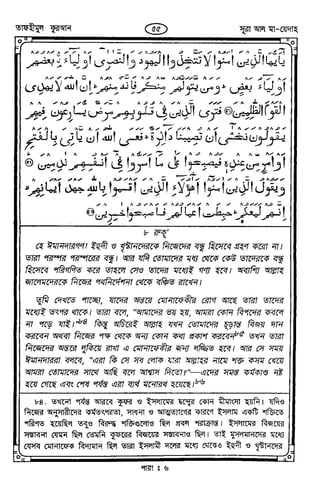 তাফহীমুল কুরআন
৫৫
সূরা আল মা-য়েদাহ
يٰٓاَيُّهَا الَّذِيْنَ اٰمَنُوْا لَا تَتَّخِذُوا الْيَهُوْدَ وَالنَّصٰرٰٓى اَوْلِيَآءَ بَعْضُهُمْ
اَوْلِيَآءُ بَعْضٍ وَمَنْ يَّتَوَلَّهُمْ مِّنْكُمْ فَاِنَّهٗ مِنْهُمْ اِنَّ اللّٰهَ لَا يَهْدِى
الْقَوْمَ الظّٰلِمِيْنَ ﴿٥١﴾ فَتَرَى الَّذِيْنَ فِىْ قُلُوْبِهِمْ مَّرَضٌ يُّسَارِعُوْنَ فِيْهِمْ
يَقُوْلُوْنَ نَخْشٰٓى اَنْ تُصِيْبَنَا دَآئِرَةٌ فَعَسَى اللّٰهُ اَنْ يَّاْتِىَ بِالْفَتْحِ
اَوْ اَمْرٍ مِّنْ عِنْدِهٖ فَيُصْبِحُوْا عَلٰى مَآ اَسَرُّوْا فِىْٓ اَنْفُسِهِمْ نٰدِمِيْنَ ﴿٥٢﴾
وَيَقُوْلُ الَّذِيْنَ اٰمَنُوْٓا اَهٰٓؤُلَآءِ الَّذِيْنَ اَقْسَمُوْا بِاللّٰهِ جَهْدَ اَيْمَانِهِمْ
اِنَّهُمْ لَمَعَكُمْ حَبِطَتْ اَعْمَالُهُمْ فَاَصْبَحُوْا خٰسِرِيْنَ ﴿٥٣﴾
৮ রুকূ'
হে ঈমানদারগণ! ইহুদী ও খৃষ্টানদেরকে নিজেদের বন্ধু হিসেবে গ্রহণ করো না।
তারা পরস্পর পরস্পরের বন্ধু। আর যদি তোমাদের মধ্য থেকে কেউ তাদেরকে বন্ধু
হিসেবে পরিগণিত করে তাহলে সেও তাদের মধ্যেই গণ্য হবে। অবশ্যি আল্লাহ
জালেমদেরকে নিজের পথনির্দেশনা থেকে বঞ্চিত রাখেন।
তুমি দেখতে পাচ্ছো, যাদের অন্তরে মোনাফেকীর রোগ আছে তারা তাদের
মধ্যেই তৎপর থাকে। তারা বলে, "আমাদের ভয় হয়, আমরা কোন বিপদের কবলে
না পড়ে যাই।"৮৪ কিন্তু অচিরেই আল্লাহ যখন তোমাদের চূড়ান্ত বিজয় দান
করবেন অথবা নিজের পক্ষ থেকে অন্য কোন কথা প্রকাশ করবেন৮৫ তখন তারা
নিজেদের অন্তরে লুকিয়ে রাখা এ মোনাফেকীর জন্য লজ্জিত হবে। আর সে সময়
ঈমানদাররা বলবে, "এরা কি সে সব লোক যারা আল্লাহর নামে শক্ত কসম খেয়ে
আমরা তোমাদের সাথে আছি বলে আশ্বাস দিতো।"—এদের সমস্ত কর্মকাণ্ড নষ্ট
হয়ে গেছে এবং শেষ পর্যন্ত এরা ব্যর্থ মনোরথ হয়েছে।৮৬
৮৪. তখনো পর্যন্ত আরবে কুফর ও ইসলামের দ্বন্দ্বের কোন মীমাংসা হয়নি। যদিও
নিজের অনুসারীদের কর্মতৎপরতা, সাধনা ও আত্মত্যাগের কারণে ইসলাম একটি শক্তিতে
পরিণত হয়েছিল তবুও বিরুদ্ধ শক্তিগুলোও ছিল প্রবল পরাক্রান্ত। ইসলামের বিজয়ের
সম্ভাবনা যেমন ছিল তেমনি কুফরের বিজয়ের সম্ভাবনাও ছিল। তাই মুসলমানদের মধ্যে
যেসব মোনাফেক বিদ্যমান ছিল তারা ইসলামী দলের মধ্যে থেকেও ইহুদী ও খৃষ্টানদের
পারা : ৬